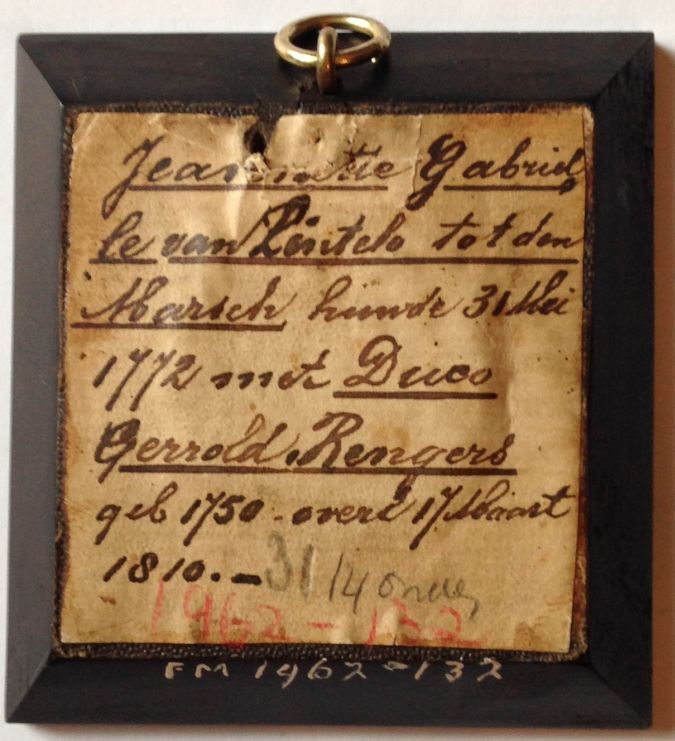 Jeannette Gabriel
le van Lintelo tot den
Marsch huwde 31 Mei
1772 met Duco
Gerrold Rengers
geb 1750 - overl 17 Maart
1810. -
31/4 onder
1962 - 132
FM 1962-132